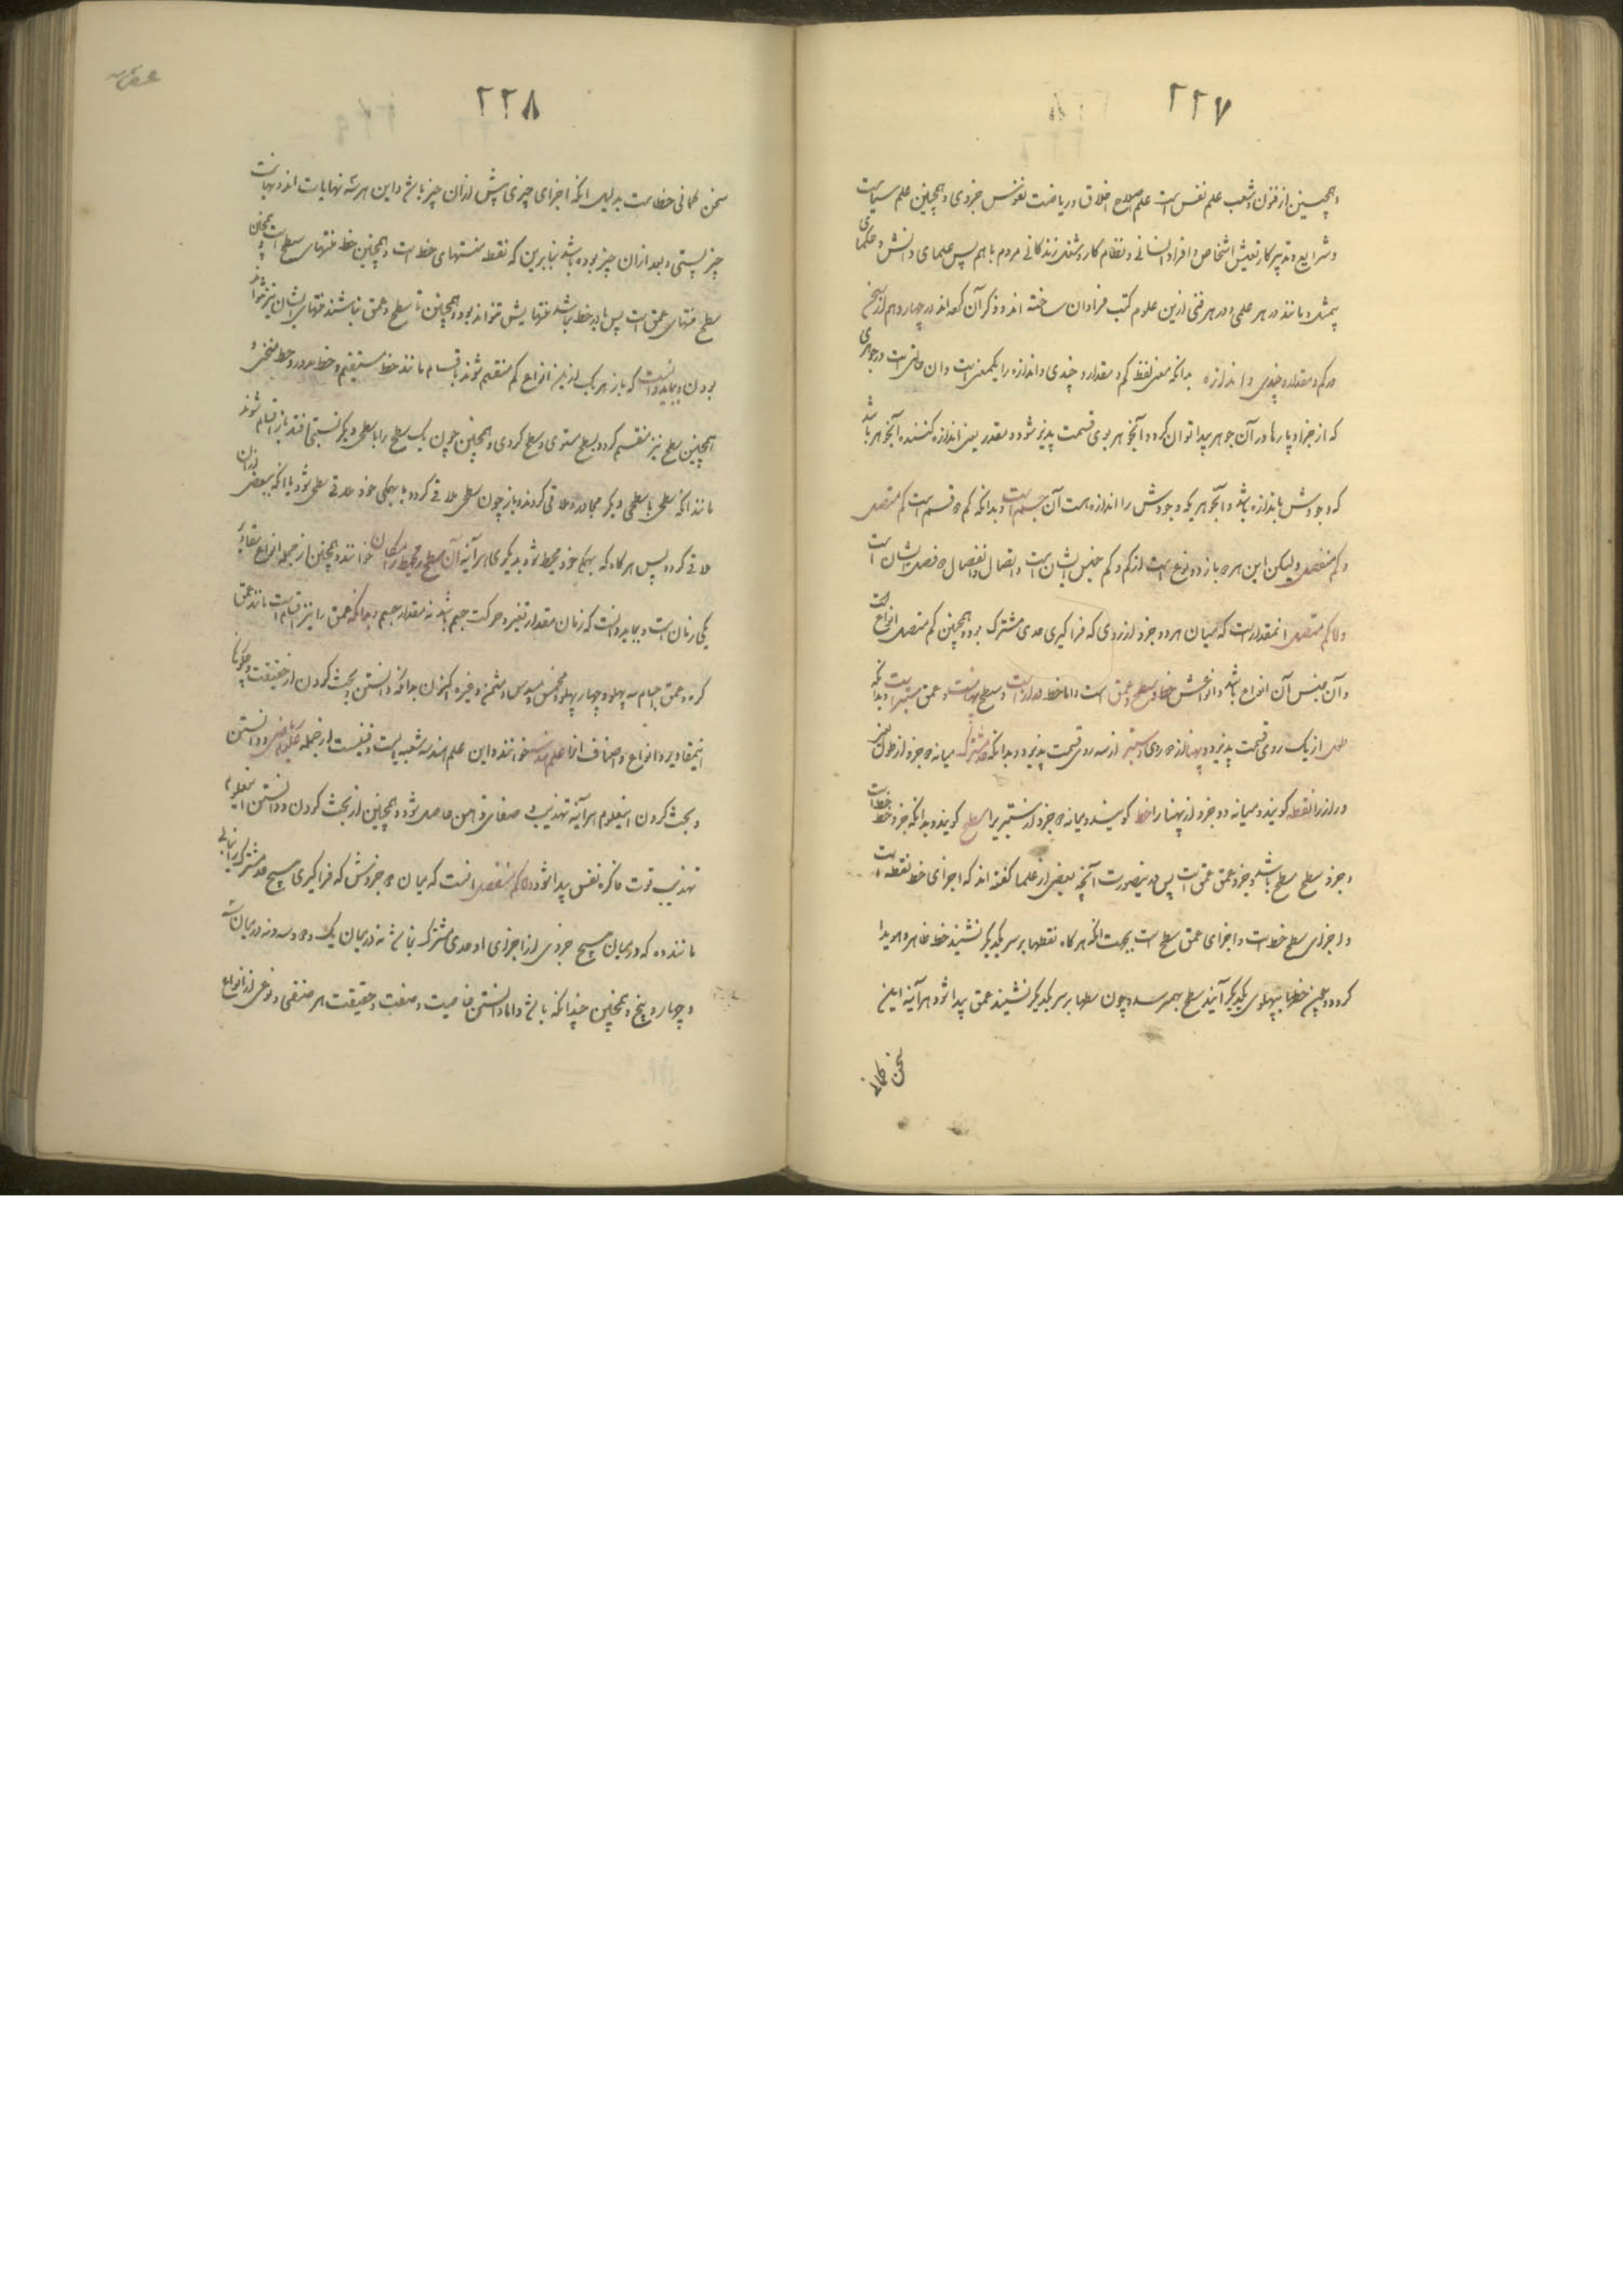 ۲۲۷
وهمچنین از فنون و شعب علم نفس است علم اصلاح اخلاق و ریاضت نفوس جزوی و همچنین علم سیاست
و شرایع و تدبیر کار تعیش اشخاص و افراد انسانی و نظام کار و شغل زندکانی مردم با هم پس علمای دانش و حکمای
بیمثل و مانند در هر علمی و در هر فنی ازین علوم کتب فراوان ساخته اند و ذکر آن کرده اند در چهاردهم از سخن
در کم و مقدار و چندی و اندازه بدانکه معنی لفظ کم و مقدار و چندی و اندازه را یکمعنی است و ان حالتی است در جوهری
که از جزاء و پارها در آن جوهر پیدا توان کرد و آنجوهر بوی قسمت پذیر شود و مقدر یعنی اندازه کننده آنجوهر باشد
که وجودش باندازه باشد و آنجوهریکه وجودش را اندازه است آن جسم است و بدانکه کم ۲ قسم است کم متصل
و کم منفصل و لیکن این هر ۲ باز دو نوع است از کم و کم جنس ایشان است و اتصال و انفصال ۲ فصل ایشان است
و اما کم متصل انمقدار است که میان هر دو جزو از روی که فراکیری حدی مشترک بود و همچنین کم متصل انواع است
و آن جنس آن انواع باشد و انواعش خط و سطح و عمق است و اما خط درازیست و سطح پهناست و عمق ستبراست و بدانکه
طول از یک روی قسمت پذیرد و پهنا از ۲ روی و ستبر از سه روی قسمت پذیرد و بدانکه حد مشترک میانه ۲ جزو از طول یعنی
درازرا نقطه کویند و میانه دو جزو از پهنا را خط کویند و میانه ۲ جزو از ستبریرا سطح کویند و بدانکه جزو خط خط است
و جزو سطح سطح باشد و جزو عمق عمق است پس درینصورت آنچه بعضی از علما کفته اند که اجزای خط نقطه است
و اجزای سطح خط است و اجزای عمق سطح است بجهت انکه هرکاه نقطها بر سر یکدیکر نشینند خط ظاهر و هویدا
کردد و چون خطها بپهلوی یکدیکر آیند سطح بهمرسد و چون سطها بر سر یکدیکر نشینند عمق پیدا شود هرآینه این
سخن کمانی
۲۲۸
سخن کمانی خطاست بدلیل انکه اجزای چیزی پیش ازان چیز باشد و این هر سه نهایات اند و نهایت
چیز پستی و بعد ازان چیز بوده باشد بنابرین که نقطه منتهای خط است و همچنین خط منتهای سطح است و همچنان
سطح منتهای عمق است پس تا در خط نباشد منتهایش نتواند بود و همچنین تا سطح و عمق نباشند منتهای ایشان نیز نتواند
بودن و بباید دانست که باز هر یک ازین انواع کم منقسم شوند باقسام مانند خط مستقیم و خط مدور و خط منحنی و
همچنین سطح نیز منقسم کردد بسطح مستوی و سطح کروی و همچنین چون یک سطح را با سطحی دیکر نسبتی افتد باز اقسام شوند
مانند انکه سطحی با سطحی دیکر مجاور و ملاقی کردند و باز چون سطحی ملاقی کردد با بهمکی خود ملاقی سطحی شود یا انکه ببعضی ازان
ملاقی کردد پس هرکاه که بهمکی خود محیط شود بدیکری هرآینه آن سطح محیط را مکان خوانند و همچنین از جمله انواع مقادیر
یکی زمان است و بباید دانست که زمان مقدار تغیر و حرکت جسم باشد نه مقدار جسم و بدانکه عمق را نیز اقسام است مانند عمق
کره و عمق اجسام سه پهلو و چهار پهلو و مخمس و مسدس و مثمن و غیره اکنون بدانکه دانستن و بحث کردن از حقیقت و چکونکی
اینمقادیر و انواع و اصناف انرا علم هندسه خوانند و این علم هندسه شعبه ایست و فنیست از جمله علوم ریاضی و دانستن
و بحث کردن اینعلوم هرآینه تهذیب و صفای ذهن حاصل شود و همچنین از بحث کردن و دانستن اینعلوم
تهذیب قوت فاکره نفس پیدا شود و اما کم منفصل انست که میان ۲ جزوش که فراکیری هیچ حد مشترک را نیابی
مانند ده که درمیان هیچ جزوی از اجزای او حدی مشترک نباشد نه درمیان یک و ۲ و سه و نه درمیان سه
و چهار و پنج و همچنین چندانکه باشد و اما دانستن خاصیت و صفت و حقیقت هر صنفی و نوعی از انواع